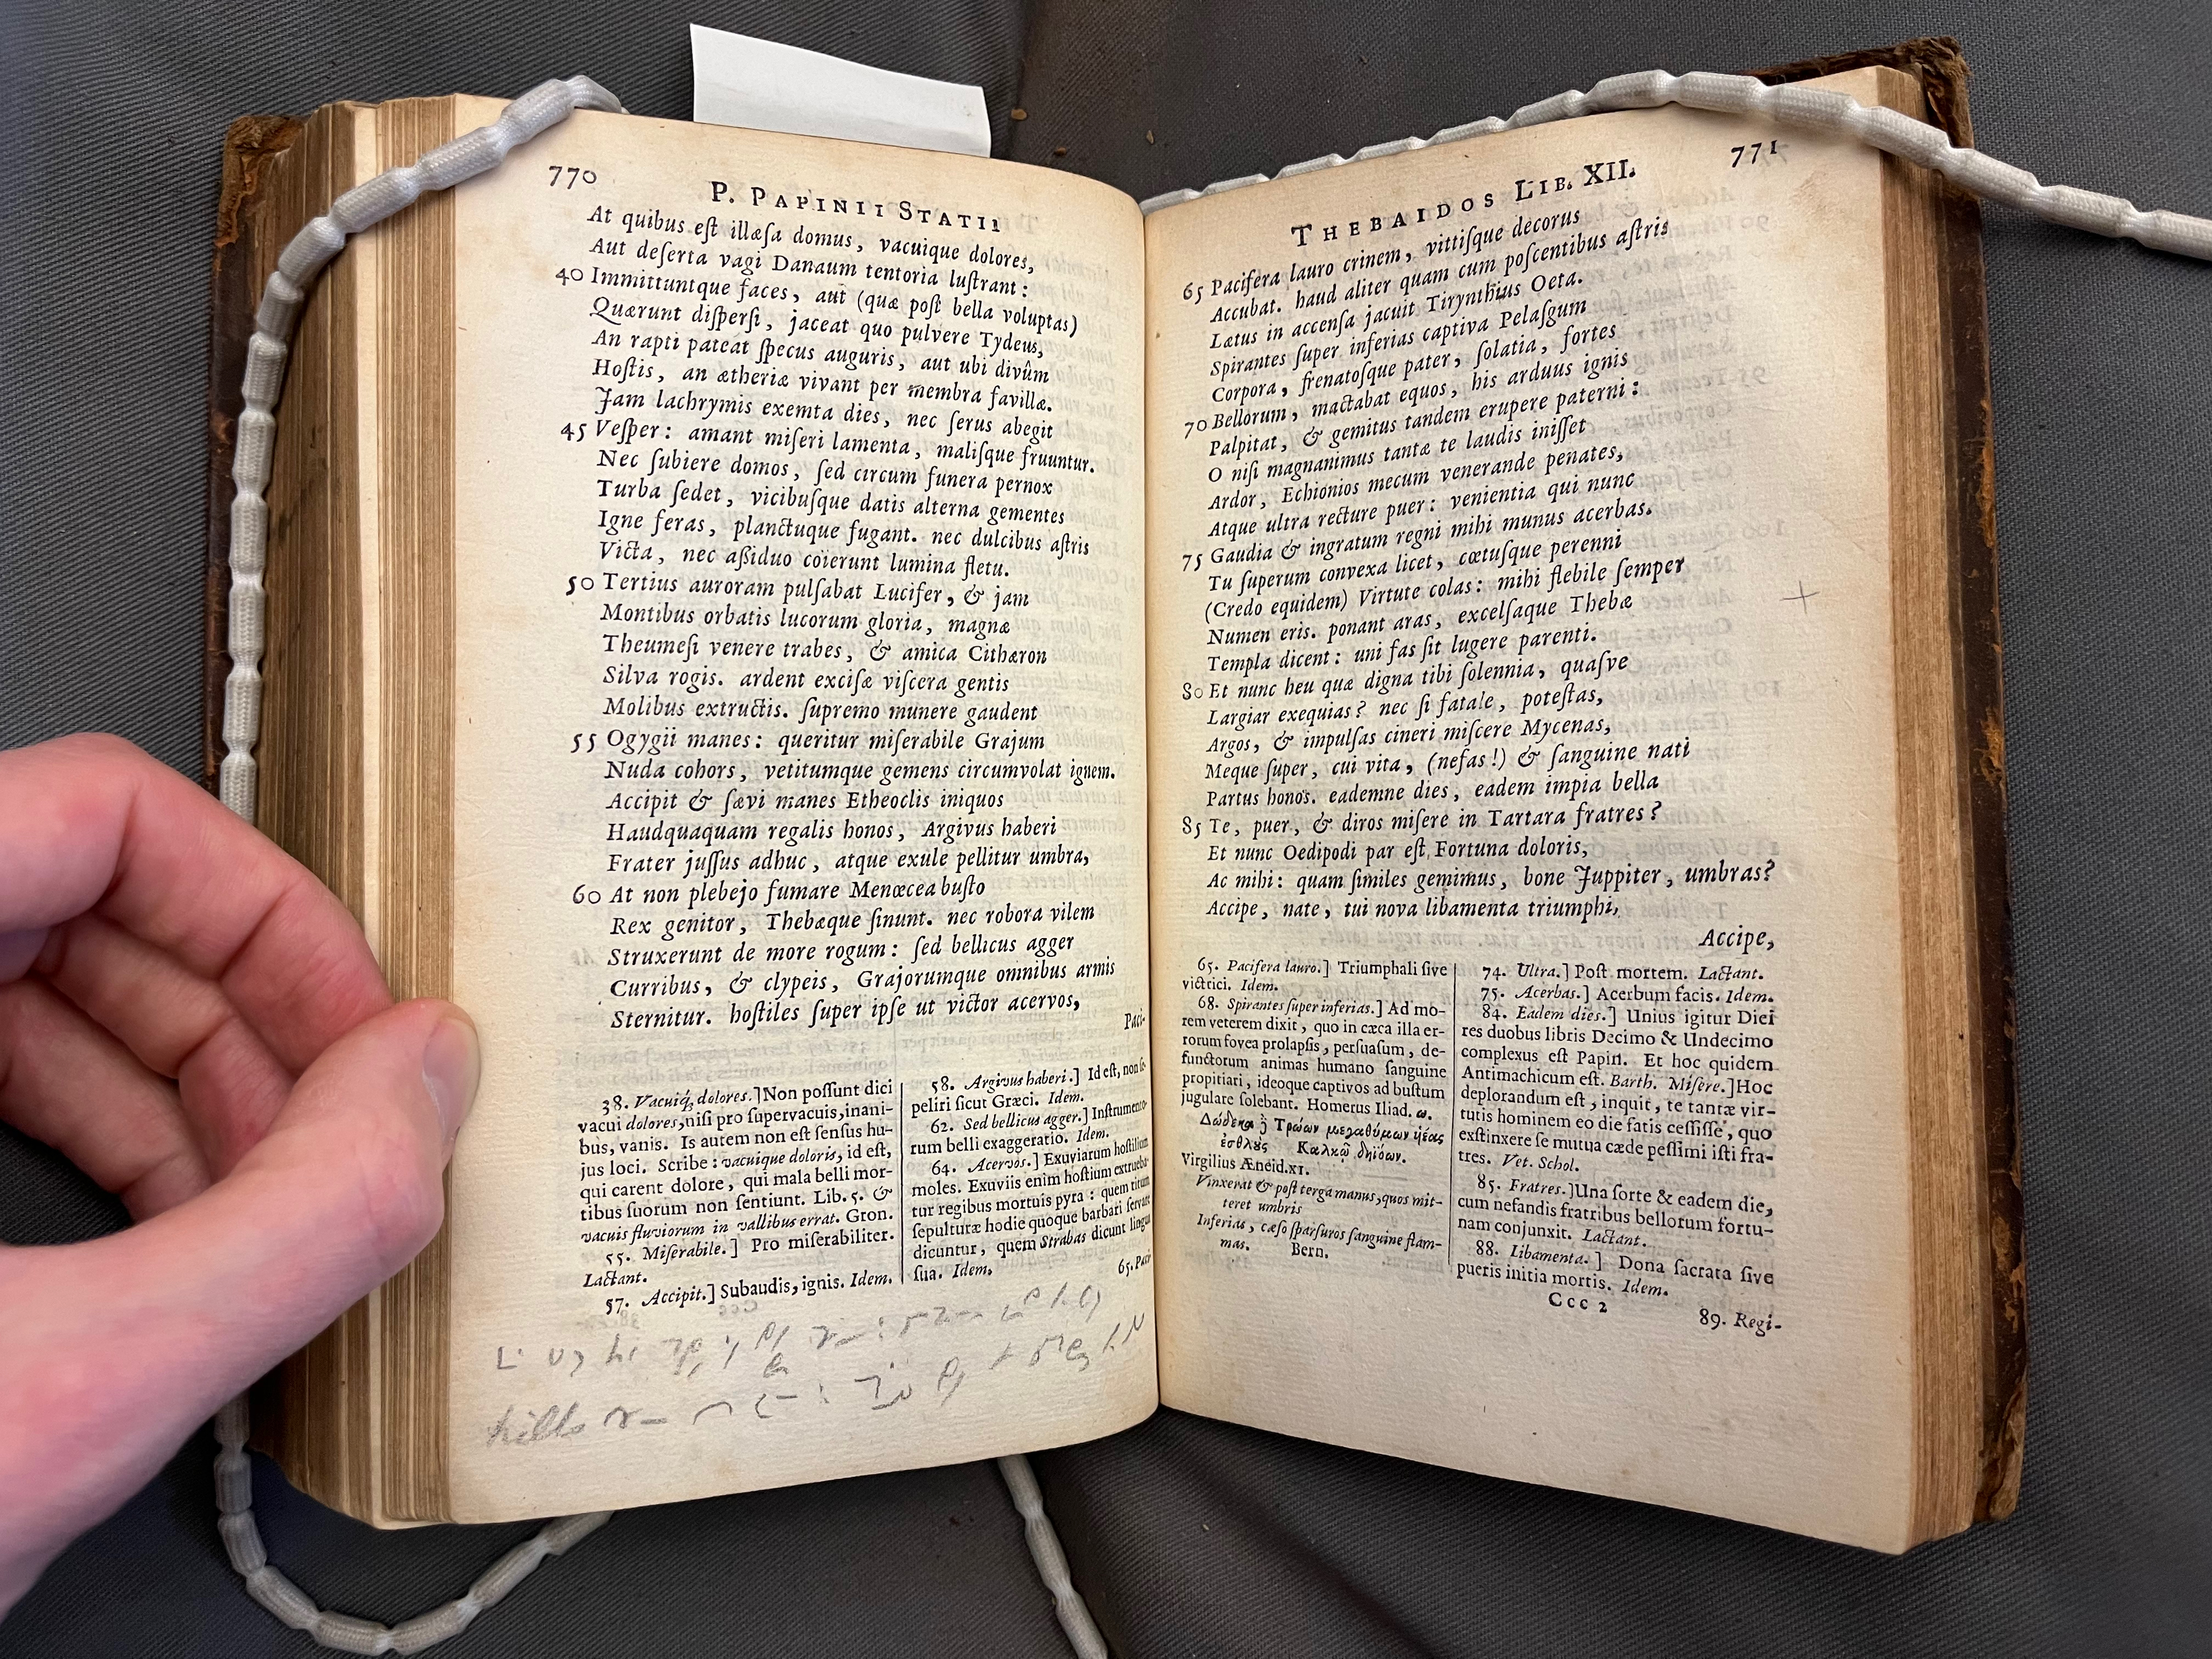 770
P. PAPINII STATII
At quibus eſt illæſa domus, vacuique dolores,
Aut deſerta vagi Danaum tentoria luſtrant:
40 Immittuntque faces, aut (quæ poſt bella voluptas)
Quærunt diſperſi, jaceat quo pulvere Tydeus,
An rapti pateat ſpecus auguris, aut ubi divûm
Hoſtis, an ætheriæ vivant per membra favillæ.
Jam lachrymis exemta dies, nec ſerus abegit
45 Veſper: amant miſeri lamenta, maliſque fruuntur.
Nec ſubiere domos, ſed circum funera pernox
Turba ſedet, vicibuſque datis alterna gementes
Igne feras, planctuque fugant. nec dulcibus aſtris
Victa, nec aſſiduo coierunt lumina fletu.
50 Tertius auroram pulſabat Lucifer, & jam
Montibus orbatis lucorum gloria, magnæ
Theumeſi venere trabes, & amica Cithæron
Silva rogis. ardent exciſæ viſcera gentis
Molibus extructis. ſupremo munere gaudent
55 Ogygii manes: queritur miſerabile Grajum
Nuda cohors, vetitumque gemens circumvolat ignem.
Accipit & ſævi manes Etheoclis iniquos
Haudquaquam regalis honos, Argivus haberi
Frater juſſus adhuc, atque exule pellitur umbra,
60 At non plebejo fumare Menœcea buſto
Rex genitor, Thebæque ſinunt. nec robora vilem
Struxerunt de more rogum: ſed bellicus agger
Curribus, & clypeis, Grajorumque omnibus armis
Sternitur. hoſtiles ſuper ipſe ut victor acervos,
Paci-
38. Vacuiq́, dolores.] Non poſſunt dici
vacui dolores, niſi pro ſupervacuis, inani-
bus, vanis. Is autem non eſt ſenſus hu-
jus loci. Scribe: vacuique doloris, id eſt,
qui carent dolore, qui mala belli mor-
tibus ſuorum non ſentiunt. Lib. 5. &
vacuis fluviorum in vallibus errat. Gron.
55. Miſerabile.] Pro miſerabiliter.
Lactant.
57. Accipit.] Subaudis, ignis. Idem.
58. Argivus haberi.] Id eſt, non ſe-
peliri ſicut Græci. Idem.
62. Sed bellicus agger.] Inſtrumento-
rum belli exaggeratio. Idem.
64. Acervos.] Exuviarum hoſtilium
moles. Exuviis enim hoſtium extrueba-
tur regibus mortuis pyra: quem ritum
ſepulturæ hodie quoque barbari ſervare
dicuntur, quem Strabas dicunt lingua
ſua. Idem.
65. Paci
771
THEBAIDOS LIB. XII.
65 Pacifera lauro crinem, vittiſque decorus
Accubat. haud aliter quam cum poſcentibus aſtris
Lætus in accenſa jacuit Tirynthius Oeta.
Spirantes ſuper inferias captiva Pelaſgum
Corpora, frenatoſque pater, ſolatia, fortes
70 Bellorum, mactabat equos, his arduus ignis
Palpitat, & gemitus tandem erupere paterni:
O niſi magnanimus tantæ te laudis iniſſet
Ardor, Echionios mecum venerande penates,
Atque ultra recture puer: venientia qui nunc
75 Gaudia & ingratum regni mihi munus acerbas.
Tu ſuperum convexa licet, cœtuſque perenni
(Credo equidem) Virtute colas: mihi flebile ſemper
Numen eris. ponant aras, excelſaque Thebæ
Templa dicent: uni fas ſit lugere parenti.
80 Et nunc heu quæ digna tibi ſolennia, quaſve
Largiar exequias? nec ſi fatale, poteſtas,
Argos, & impulſas cineri miſcere Mycenas,
Meque ſuper, cui vita, (nefas!) & ſanguine nati
Partus honos. eademne dies, eadem impia bella
85 Te, puer, & diros miſere in Tartara fratres?
Et nunc Oedipodi par eſt Fortuna doloris,
Ac mihi: quam ſimiles gemimus, bone Juppiter, umbras?
Accipe, nate, tui nova libamenta triumphi,
Accipe,
65. Pacifera lauro.] Triumphali ſive
victrici. Idem.
68. Spirantes ſuper inferias.] Ad mo-
rem veterem dixit, quo in cæca illa er-
rorum fovea prolapſis, perſuaſum, de-
functorum animas humano ſanguine
propitiari, ideoque captivos ad buſtum
jugulare ſolebant. Homerus Iliad. ω.
Δώδεκα ἢ Τρώων μεγαθύμων υἱέας
ἐσθλοὺς Καλκῷ δηϊόων.
Virgilius Æneid. XI.
Vinxerat & poſt terga manus, quos mit-
teret umbris
Inferias, cæſo ſparſuros ſanguine flam-
mas. Bern.
74. Ultra.] Poſt mortem. Lactant.
75. Acerbas.] Acerbum facis. Idem.
84. Eadem dies.] Unius igitur Diei
res duobus libris Decimo & Undecimo
complexus eſt Papin. Et hoc quidem
Antimachicum eſt. Barth. Miſere.] Hoc
deplorandum eſt, inquit, te tantæ vir-
tutis hominem eo die fatis ceſſiſſe, quo
exſtinxere ſe mutua cæde peſſimi iſti fra-
tres. Vet. Schol.
85. Fratres.] Una ſorte & eadem die,
cum nefandis fratribus bellorum fortu-
nam conjunxit. Lactant.
88. Libamenta.] Dona ſacrata ſive
pueris initia mortis. Idem.
Ccc 2
89. Regi-